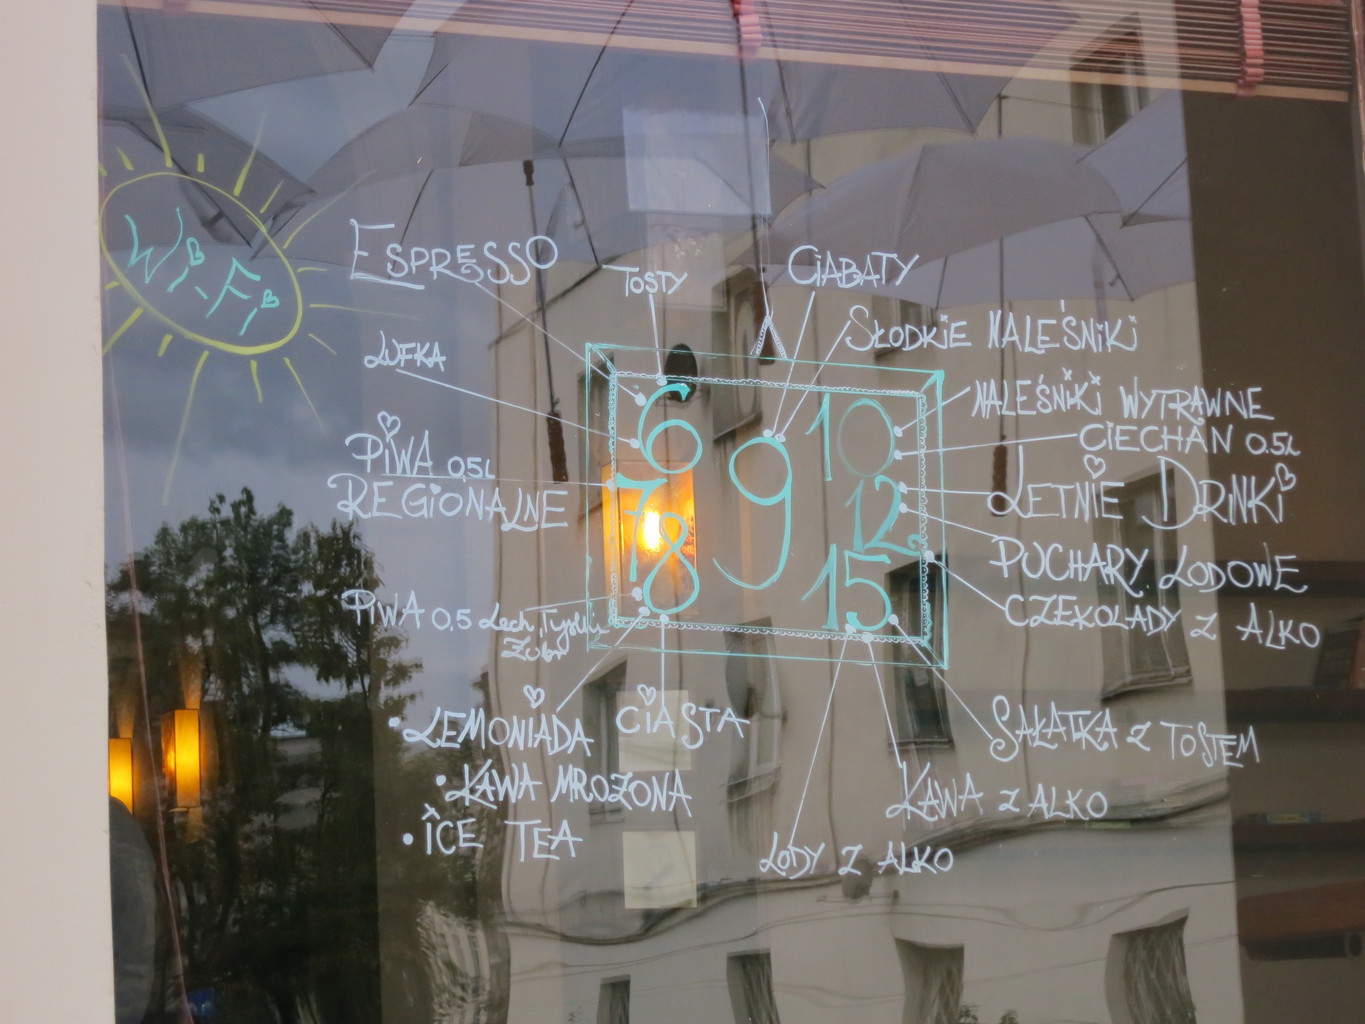 Wi-Fi
ESPRESSO
TOSTY
CIABATY
SŁODKIE NALEŚNIKI
LUFKA
NALEŚNIKI WYTRAWNE
PIWA 0,5L
REGIONALNE
CIECHAN 0.5L
LETNIE DRINKI
PUCHARY LODOWE
CZEKOLADY Z ALKO
PIWA 0,5 Lech, Tyskie
Żubr
6
7
8
9
10
12
15
LEMONIADA
KAWA MROŻONA
ICE TEA
CIASTA
SAŁATKA Z TOSTEM
KAWA Z ALKO
LODY Z ALKO